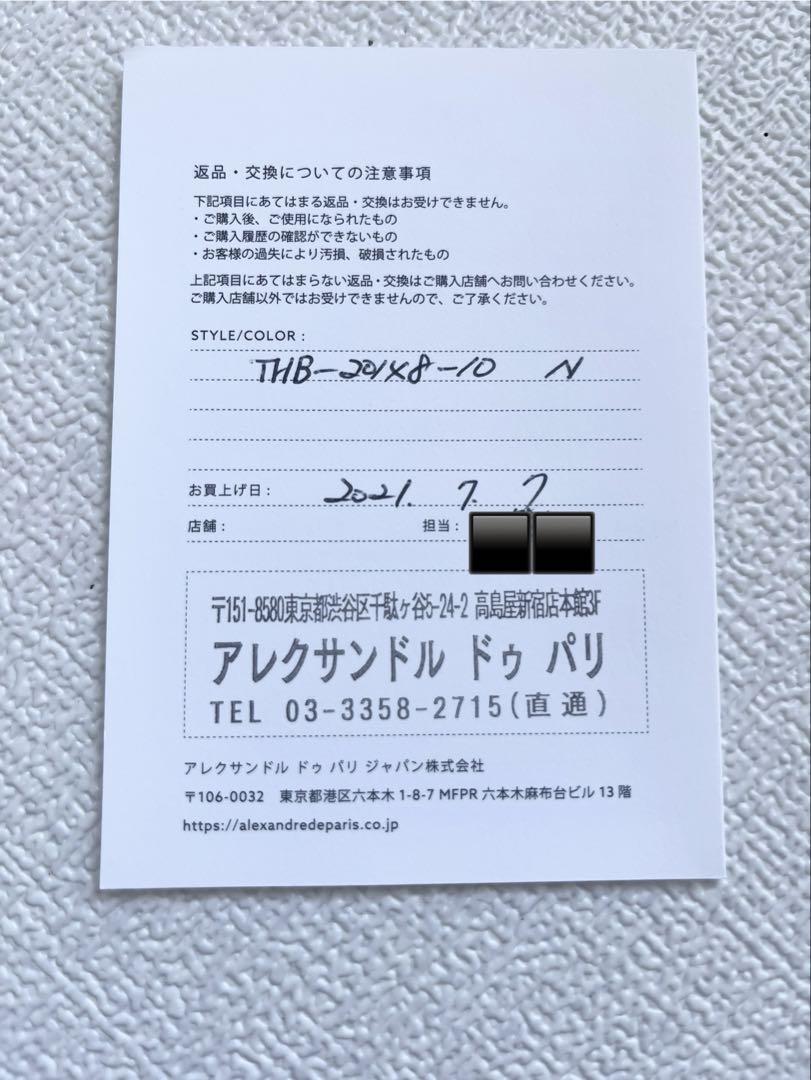 返品・交換についての注意事項
下記項目にあてはまる返品・交換はお受けできません。
・ご購入後、ご使用になられたもの
・ご購入履歴の確認ができないもの
・お客様の過失により汚損、破損されたもの
上記項目にあてはまらない返品・交換はご購入店舗へお問い合わせください。
ご購入店舗以外ではお受けできませんので、ご了承ください。
STYLE/COLOR :
THB-201X8-10 N
お買上げ日 : 2021. 7. 7
店舗 : 担当 :
〒151-8580東京都渋谷区千駄ヶ谷5-24-2 高島屋新宿店本館3F
アレクサンドル ドゥ パリ
TEL 03-3358-2715(直通)
アレクサンドル ドゥ パリ ジャパン株式会社
〒106-0032 東京都港区六本木 1-8-7 MFPR 六本木麻布台ビル 13 階
https://alexandredeparis.co.jp